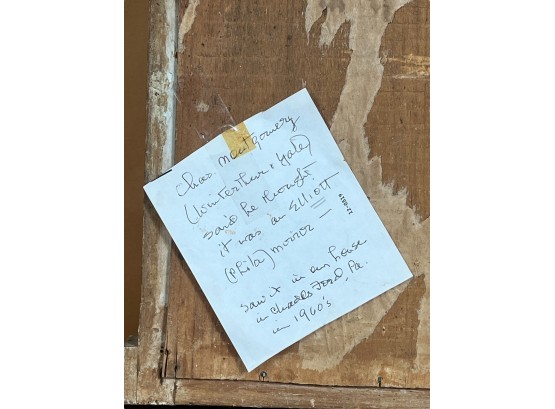 Chas. Montgomery
(Winterthur + Yale)
said he thought
it was an Elliott
(Phila) mirror
saw it in our house
in Chadds Ford, Pa.
in 1960's